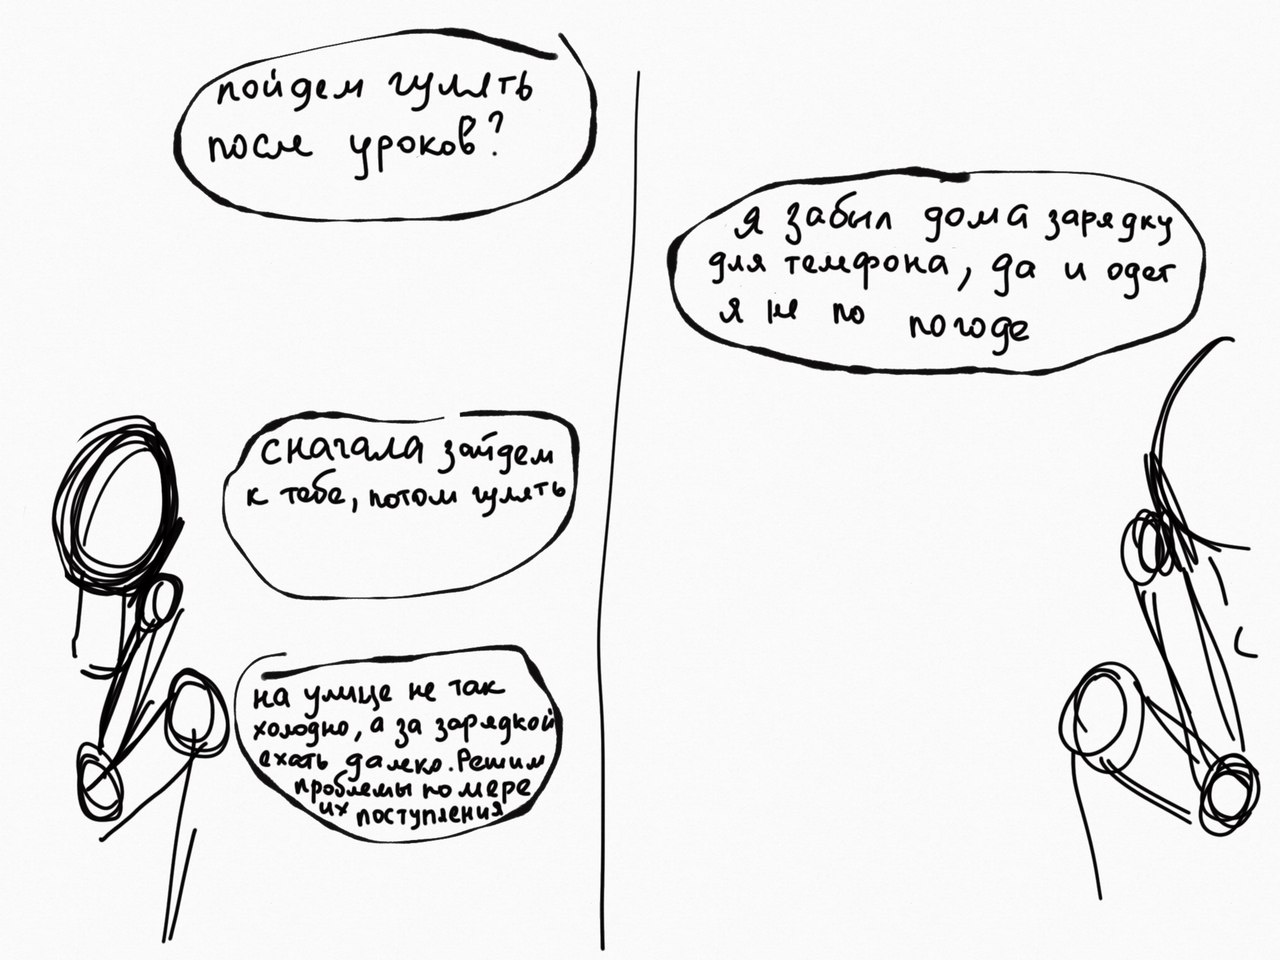 пойдем гулять
после уроков?
я забыл дома зарядку
для телефона, да и одет
я не по погоде
сначала зайдем
к тебе, потом гулять
на улице не так
холодно, а за зарядкой
ехать далеко. Решим
проблемы по мере
их поступления